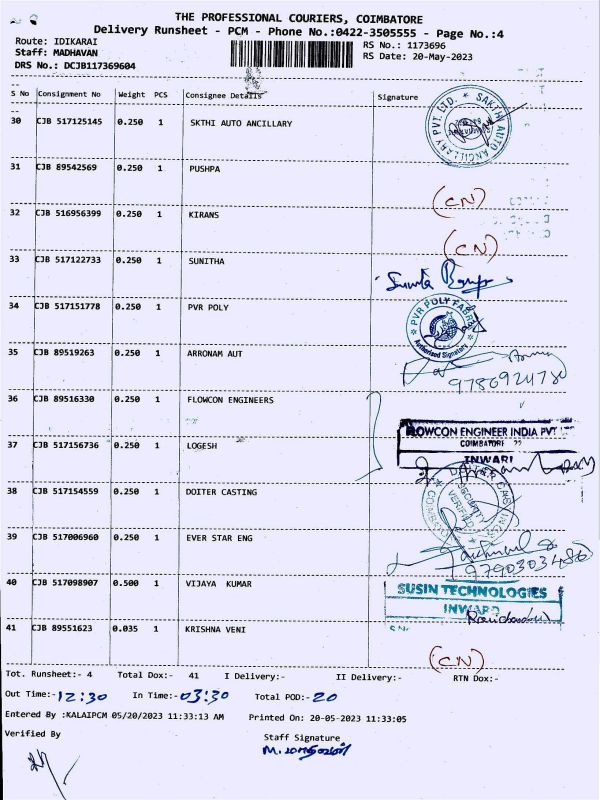 THE PROFESSIONAL COURIERS, COIMBATORE
Delivery Runsheet - PCM - Phone No.:0422-3505555 - Page No.:4
Route: IDIKARAI
RS No.: 1173696
Staff: MADHAVAN
RS Date: 20-May-2023
DRS No.: DCJB117369604
S No Consignment No Weight PCS Consignee Details Signature
30 CJB 517125145 0.250 1 SKTHI AUTO ANCILLARY
SAKTHI AUTO ANCILLARY PVT. LTD.
31 CJB 89542569 0.250 1 PUSHPA
(CN)
32 CJB 516956399 0.250 1 KIRANS
(CN)
33 CJB 517122733 0.250 1 SUNITHA
34 CJB 517151778 0.250 1 PVR POLY
PVR POLY FABRI
Authorised Signatory
35 CJB 89519263 0.250 1 ARRONAM AUT
9786924780
36 CJB 89516330 0.250 1 FLOWCON ENGINEERS
FLOWCON ENGINEER INDIA PVT
COIMBATORE
INWARI
37 CJB 517156736 0.250 1 LOGESH
38 CJB 517154559 0.250 1 DOITER CASTING
SECURITY
VERIFIED
39 CJB 517006960 0.250 1 EVER STAR ENG
9790303486
40 CJB 517098907 0.500 1 VIJAYA KUMAR
SUSIN TECHNOLOGIES
INWARD
41 CJB 89551623 0.035 1 KRISHNA VENI
(CN)
Tot. Runsheet:- 4 Total Dox:- 41 I Delivery:- II Delivery:- RTN Dox:-
Out Time:- 12:30 In Time:- 03:30 Total POD:- 20
Entered By :KALAIPCM 05/20/2023 11:33:13 AM Printed On: 20-05-2023 11:33:05
Verified By
Staff Signature